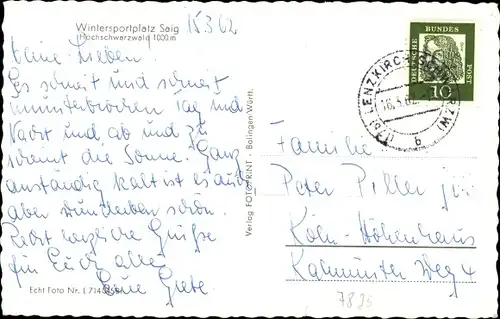 Wintersportplatz Saig
(Hochschwarzwald 1000 m)
15.3.62
Meine Lieben.
Es schneit und schneit
ununterbrochen Tag und
Nacht und ab und zu
scheint die Sonne. Ganz
anständig kalt ist es auch
aber wunderbar schön.
Recht herzliche Grüße
für Euch alle
Eure Grete.
Echt Foto Nr. L 7140
Verlag FOTOPRINT - Balingen Württ.
DEUTSCHE
BUNDES
POST
10
(17b) LENZKIRCH (SCHWARZW)
16.3.62
b
Familie
Peter Piller jr.
Köln-Höhenhaus
Kalmünter Weg 4
7835